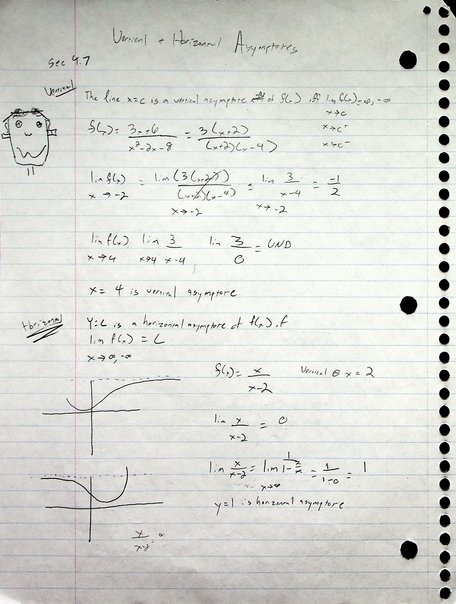 Vertical + Horizontal Asymptotes
Sec 4.7
Vertical
The line x=c is a vertical asymptote of f(x) iff lim f(x)=∞,-∞
x→c
x→c⁻
x→c⁻
f(x) = 3x+6 / x²-2x-8 = 3(x+2) / (x+2)(x-4)
lim f(x) = lim (3(x+2)) / (x+2)(x-4) = lim 3 / x-4 = -1 / 2
x→-2 x→-2 x→-2
lim f(x) lim 3 / x-4 lim 3 / 0 = UND
x→4 x→4
x = 4 is vertical asymptote
Horizontal
Y=L is a horizontal asymptote of f(x) if
lim f(x) = L
x→∞,-∞
f(x) = x / x-2 Vertical @ x = 2
lim x / x-2 = 0
lim x / x-2 = lim 1 / 1-2/x = 1 / 1-0 = 1
x→∞
y=1 is horizontal asymptote